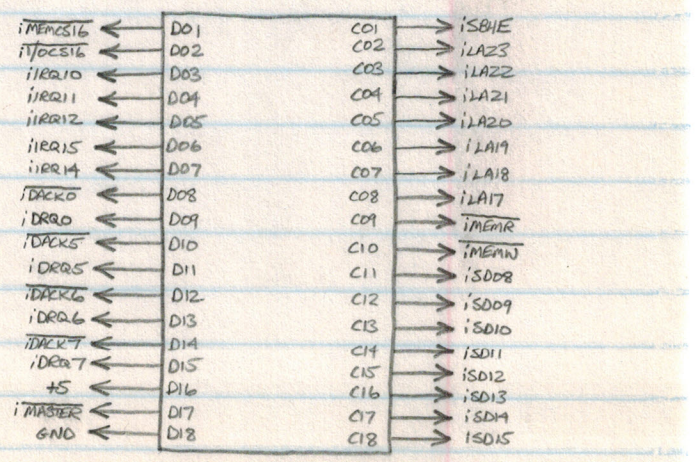 iMEMCS16 D01 C01 iSBHE
iI/OCS16 D02 C02 iLA23
iIRQ10 D03 C03 iLA22
iIRQ11 D04 C04 iLA21
iIRQ12 D05 C05 iLA20
iIRQ15 D06 C06 iLA19
iIRQ14 D07 C07 iLA18
iDACK0 D08 C08 iLA17
iDRQ0 D09 C09 iMEMR
iDACK5 D10 C10 iMEMW
iDRQ5 D11 C11 iSD08
iDACK6 D12 C12 iSD09
iDRQ6 D13 C13 iSD10
iDACK7 D14 C14 iSD11
iDRQ7 D15 C15 iSD12
+5 D16 C16 iSD13
iMASTER D17 C17 iSD14
GND D18 C18 iSD15